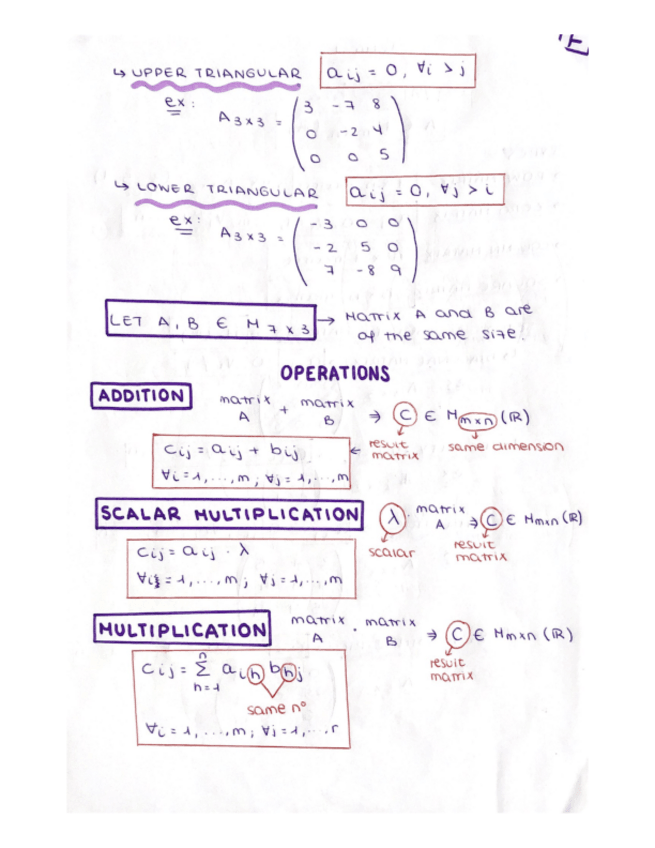 ↳ UPPER TRIANGULAR aij = 0, ∀i > j
ex:
A3x3 = ( 3 -7 8
0 -2 4
0 0 5 )
↳ LOWER TRIANGULAR aij = 0, ∀j > i
ex:
A3x3 = ( -3 0 0
-2 5 0
7 -8 9 )
LET A, B ∈ M7x3 → Matrix A and B are
of the same size.
OPERATIONS
ADDITION matrix A + matrix B ⇒ C ∈ Mmxn (ℝ)
result matrix same dimension
cij = aij + bij
∀i=1,...,m; ∀j=1,...,m
SCALAR MULTIPLICATION λ · matrix A ⇒ C ∈ Mmxn (ℝ)
scalar result matrix
cij = aij · λ
∀i=1,...,m; ∀j=1,...,m
MULTIPLICATION matrix A · matrix B ⇒ C ∈ Mmxn (ℝ)
result matrix
cij = n Σ h=1 aih bhj
same nº
∀i=1,...,m; ∀j=1,...,r